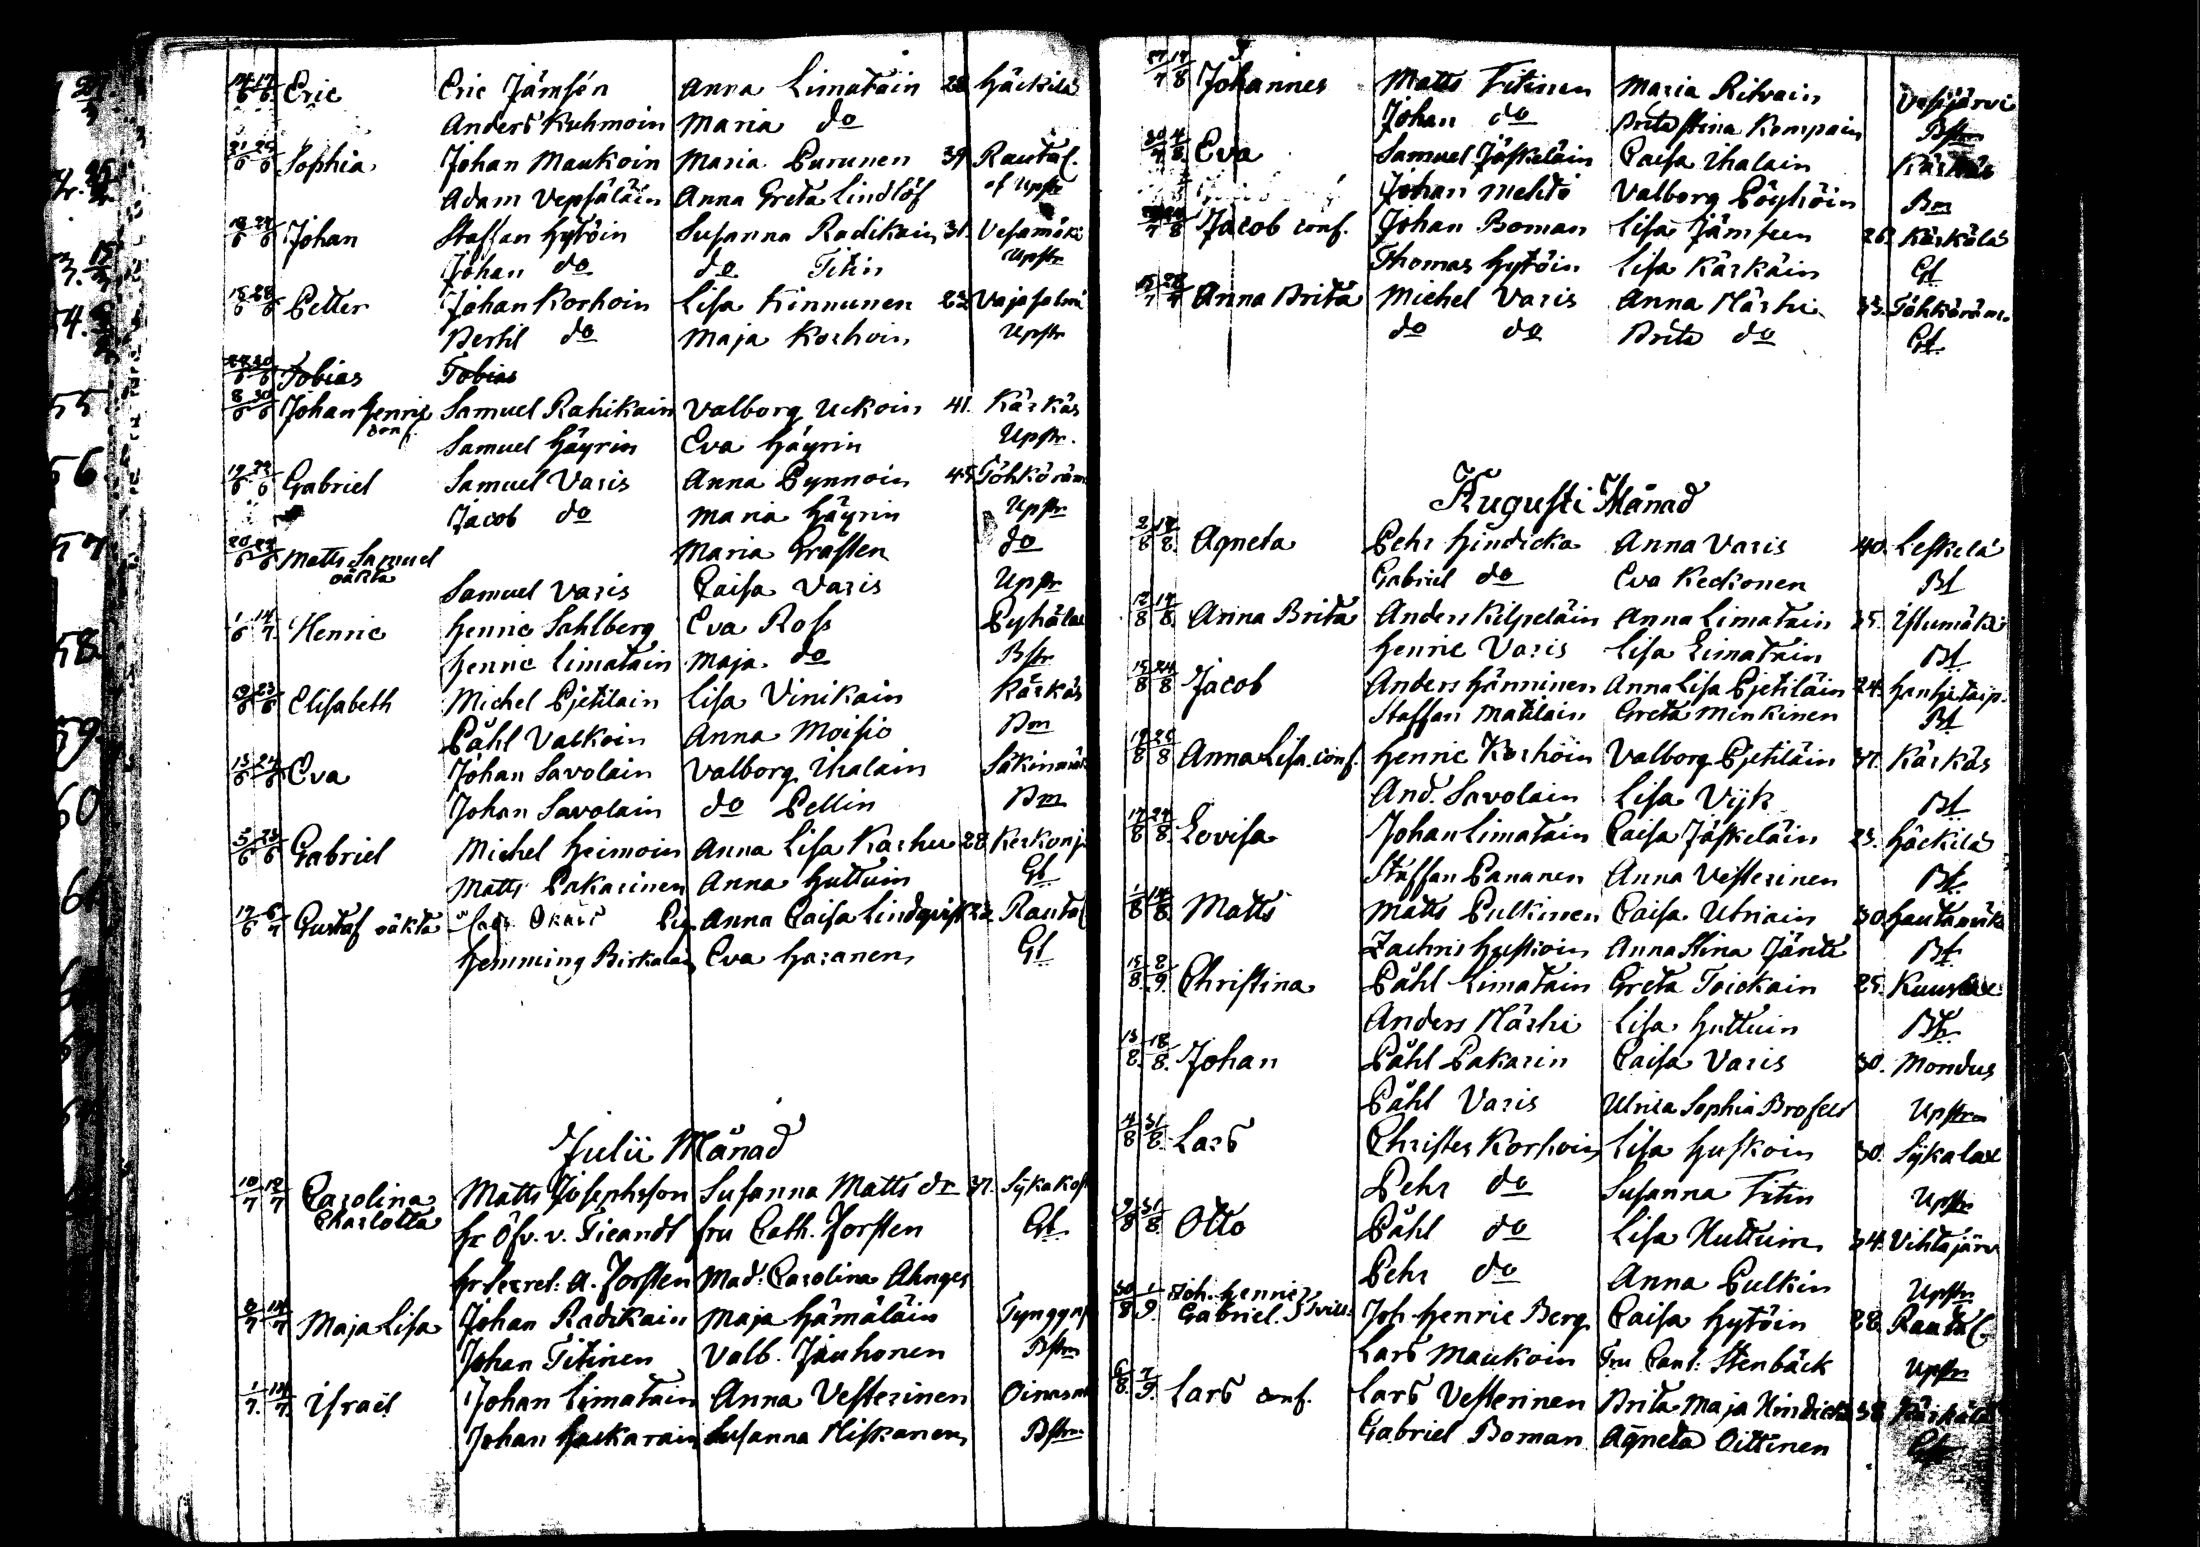 14/6 17/6 Eric Eric Jämsén Anna Limatain 28 Häckilä
Anders Kuhmoin Maria do
21/6 23/6 Sophia Johan Maukoin Maria Purunen 39 Rautal.
Adam Vepsäläin Anna Greta Lindlöf Upstr
Johan Staffan Hytöin Susanna Radikain 31. Vesamäki
Johan do do Titin Upstr
18/6 28/6 Petter Johan Korhoin Lisa Kinnunen 23 Vajasalmi
Bertil do Maja Korhoin Upstr
Tobias Tobias
8/6 30/6 Johan Henric conf. Samuel Rahikain Valborg Uckoin 41. Kärkäs
Samuel Häyrin Eva Häyrin Upstr.
Gabriel Samuel Varis Anna Pynnöin 45 Töhköräm
Jacob do Maria Häyrin Upstr
Matts Samuel oäkta Maria Grasten do
Samuel Varis Caisa Varis Upstr
1/6 14/7 Henric Henric Sahlberg Eva Ross Pyhälax
Henric Limatain Maja do Bstr
Elisabeth Michel Pjetilain Lisa Vinikain Kärkäs
Påhl Valkoin Anna Moisio Bm
13/6 24/6 Eva Johan Savolain Valborg Ihalain Säkinmäk
Johan Savolain do Pellin Bm
5/6 23/6 Gabriel Michel Heimoin Anna Lisa Karhu 28 Kerkonj.
Matts Pakarinen Anna Huttuin Gl
17/6 6/7 Gustaf oäkta Pig. Anna Caisa Lindqvist 22 Rautal
Hemming Birkalain Eva Haranen Gl
Julii Månad
10/7 12/7 Carolina Charlotta Matts Josephsson Susanna Matts dr 37. Sykäkos
hr Öfv. v. Fieandt fru Cath. Forsten Gl
hr Secret: A. Forsten Mad: Carolina Ahnger
8/7 14/7 Maja Lisa Johan Radikain Maja Hämäläin Tynnyr
Johan Titinen Valb. Jauhonen Bstm
1/7 14/7 Israel Johan Limatain Anna Vesterinen Oinasm
Johan Hackarain Susanna Miskanen Bstm
17/7 14/8 Johannes Matts Titinen Maria Ritvain Vesijärvi
Johan do Brita Stina Kompain Bstm
30/7 4/8 Eva Samuel Jäskeläin Caisa Ihalain Kärkäs
Johan Mehto Valborg Pöyhöin Bm
Jacob conf. Johan Boman Lisa Jämsen 26. Kärkälä
Thomas Hytöin Lisa Kärkäin Gl
Anna Brita Michel Varis Anna Märhi 33. Töhköräm.
do do Brita do Gl
Augusti Månad
2/8 14/8 Agneta Pehr Hindicka Anna Varis 40. Leskelä
Gabriel do Eva Keckonen Bl
12/8 14/8 Anna Brita Anders Kilpeläin Anna Limatain 35. Istumäki
Henric Varis Lisa Limatain Bl
15/8 24/8 Jacob Anders Hänninen Anna Lisa Pjetiläin 24. Hanhitaip.
Staffan Matilain Greta Minkinen Bl
19/8 25/8 Anna Lisa conf. Henric Korhoin Valborg Pjetiläin 37. Kärkäs
And. Savolain Lisa Vijk Bl
17/8 24/8 Lovisa Johan Limatain Caisa Jäskeläin 23. Häckilä
Staffan Pananen Anna Vesterinen Bl
1/8 14/8 Matts Matts Pulkinen Caisa Utriain 30. Hautamäk
Zachris Huskoin Anna Stina Jänti Bl
15/8 8/9 Christina Påhl Limatain Greta Toickain 25. Kuuslax
Anders Märhi Lisa Huttuin Bl
13/8 18/8 Johan Påhl Pakarin Caisa Varis 30. Mondus
Påhl Varis Ulrica Sophia Brofelt Upstr
4/8 31/8 Lars Christer Korhoin Lisa Huskoin 30. Sykalax
Pehr do Susanna Titin Upstr
9/8 31/8 Otto Påhl do Lisa Huttuin 34. Vihtajärv
Pehr do Anna Pulkin Upstr
30/8 1/9 Joh. Henric Gabriel. Tvill. Joh. Henric Berg Caisa Hytöin 28. Rautal
Lars Maukoin Fru Cant: Stenbäck Upstr
6/8 7/9 Lars conf. Lars Vesterinen Brita Maja Hindicka 38 Kärkälä
Gabriel Boman Agneta Oittinen